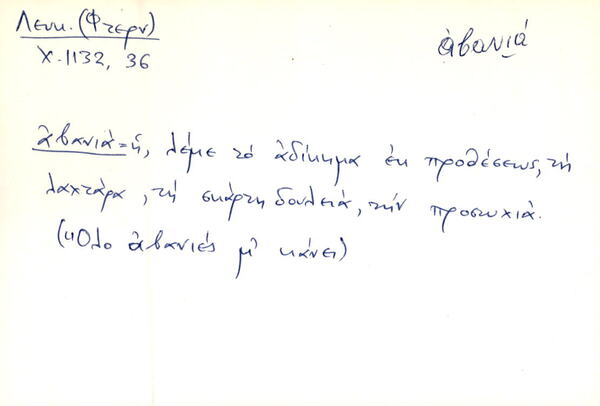 Λευκ. (Φτερν)
Χ. 1132, 36
ἀβανιά
ἀβανιὰ = ἡ, λέμε τὸ ἀδίκημα ἐκ προθέσεως, τὴ
λαχτάρα, τὴ σκάρτη δουλειά, τὴν προσωχιά.
(Ὅλο ἀβανιές μ' κάνει)